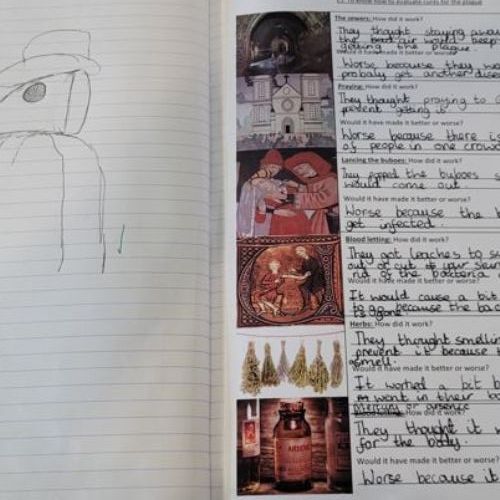 L2: To know how to evaluate cures for the plague
The sewers: How did it work?
They thought staying away
the bad air would keep
getting the plague.
Would it have made it better or worse?
Worse because they wo
probaly get another disea
Praying: How did it work?
They thought praying to
prevent getting it
Would it have made it better or worse?
Worse because there i
of people in one crowd
Lancing the buboes: How did it work?
They popped the buboes s
would come out.
Would it have made it better or worse?
Worse because the
get infected.
Blood letting: How did it work?
They got leaches to s
out or cut your
rid of the bacteria
Would it have made it better or worse?
It would cause a bit
to go because the bac
is gone
Herbs: How did it work?
They thought smellin
prevent it because
smell.
Would it have made it better or worse?
It worked a bit b
went in their bo
Mercury or arsence
How did it work?
They thought it w
for the body.
Would it have made it better or worse?
Worse because it